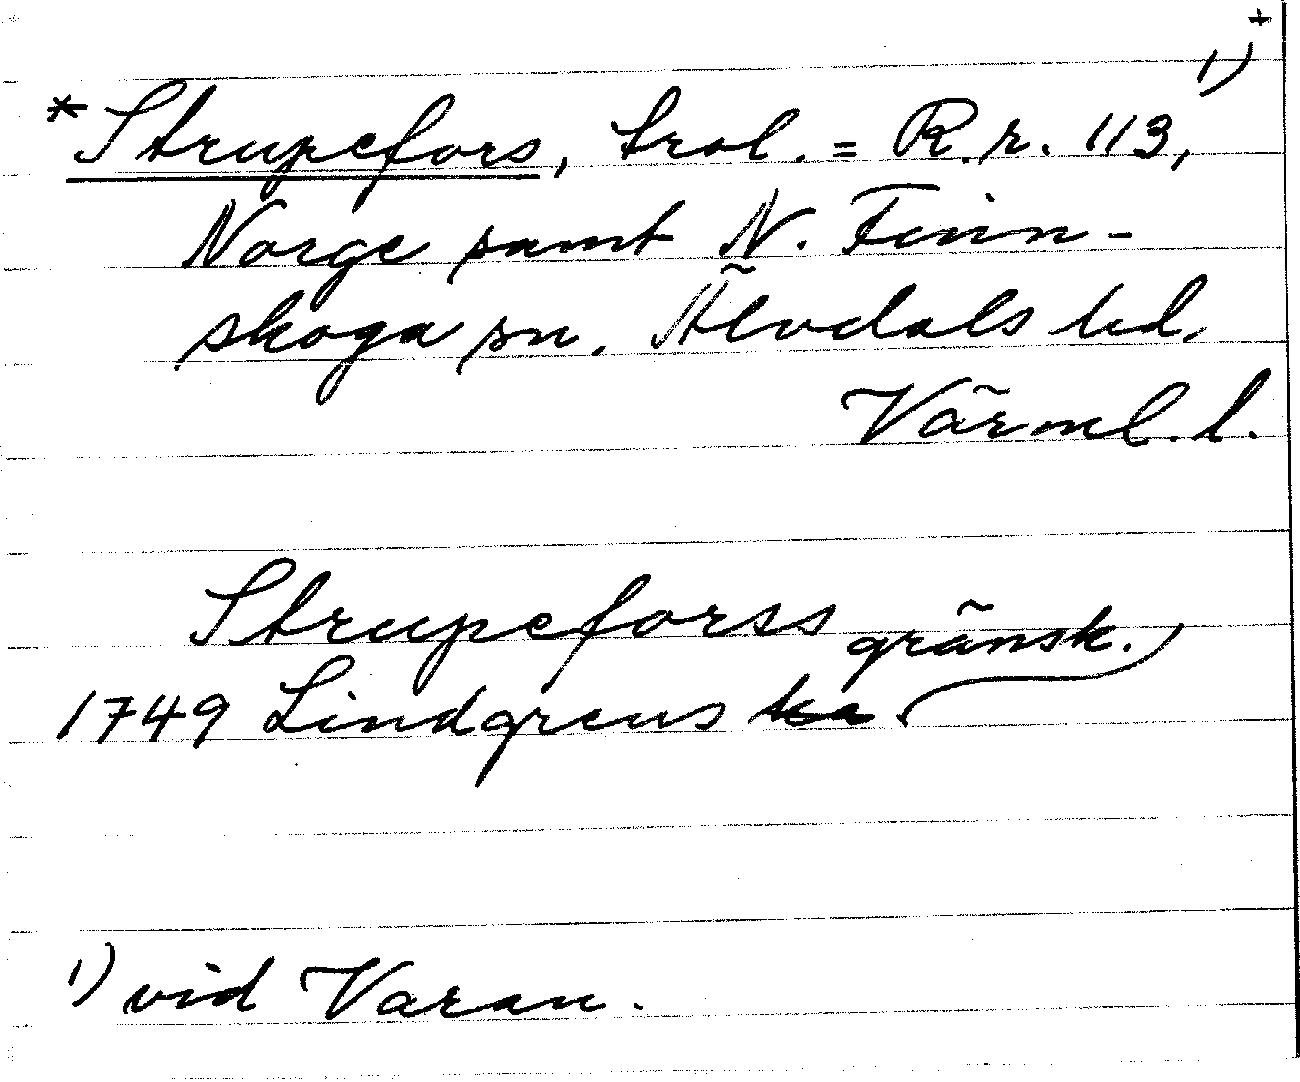 +
*Strupefors, trol. = R.r. 113, 1)
Norge samt N. Finn-
skoga sn. Älvdals hd,
Värml. l.
Strupeforss
1749 Lindgrens ka. gränsk.
1) vid Varan.